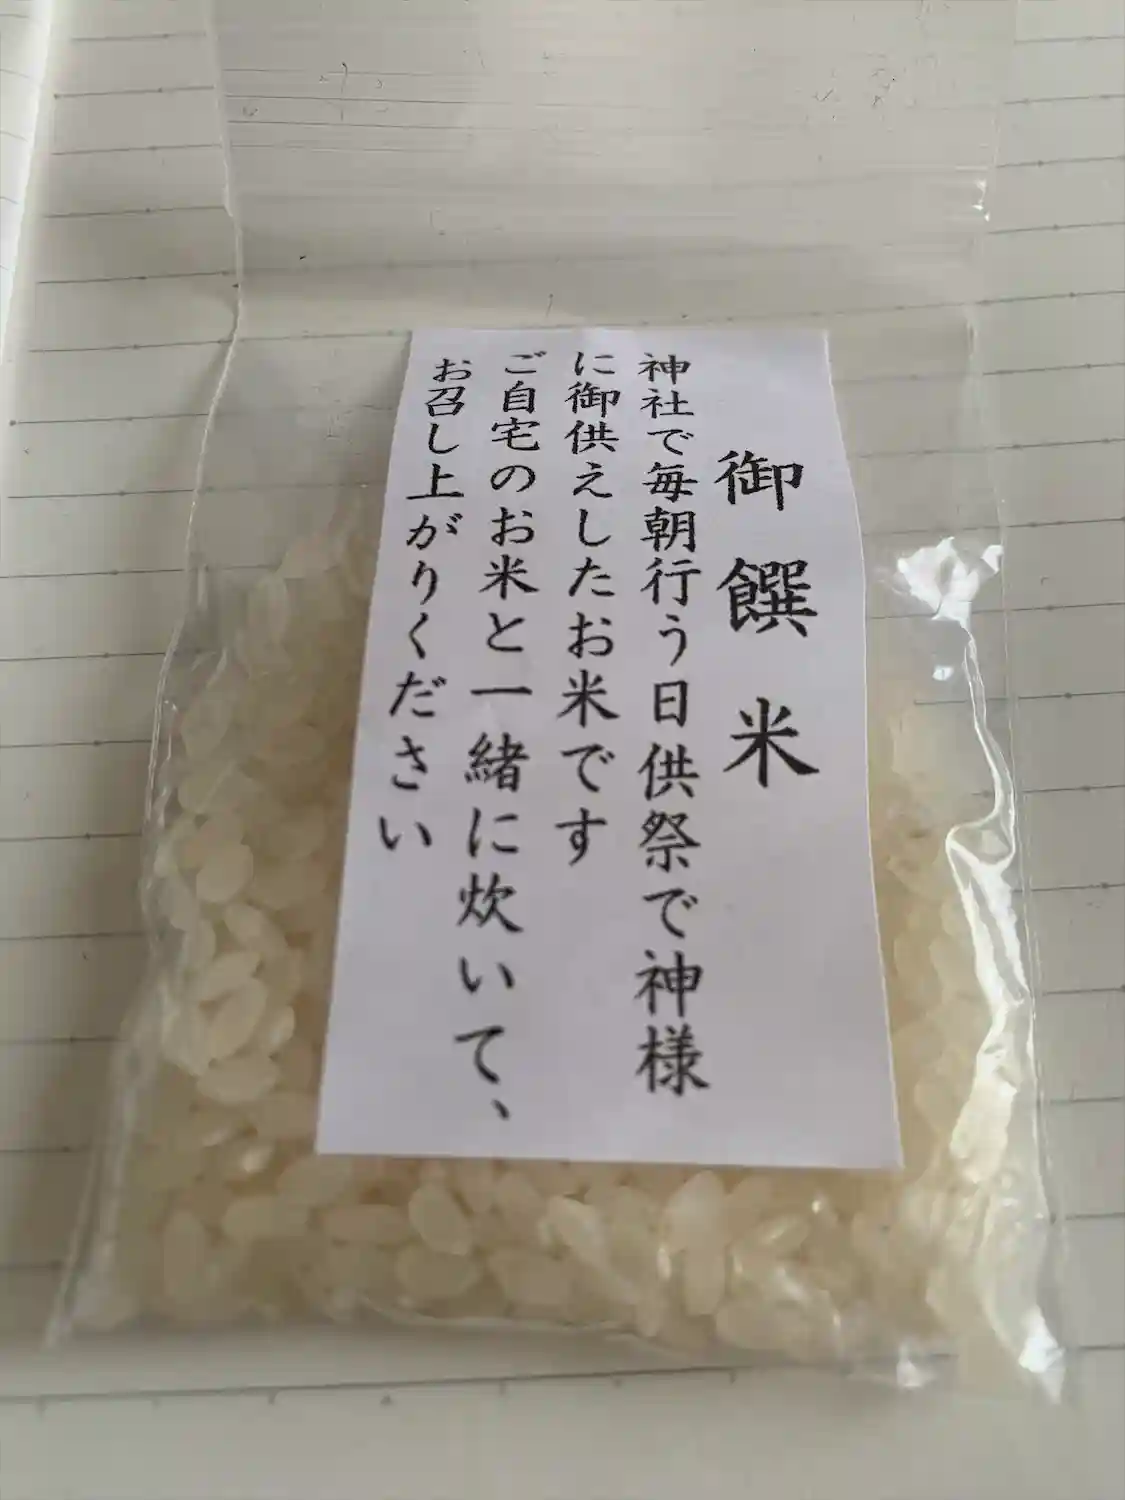 御饌米
神社で毎朝行う日供祭で神様
に御供えしたお米です
ご自宅のお米と一緒に炊いて、
お召し上がりください